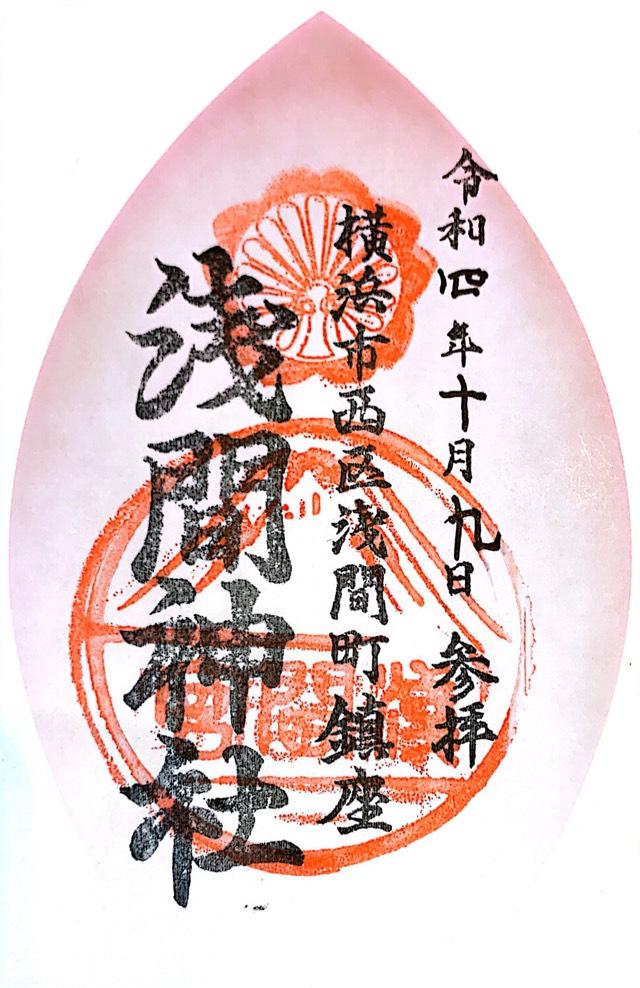 令和四年十月九日 参拝
横浜市西区浅間町鎮座
浅間神社